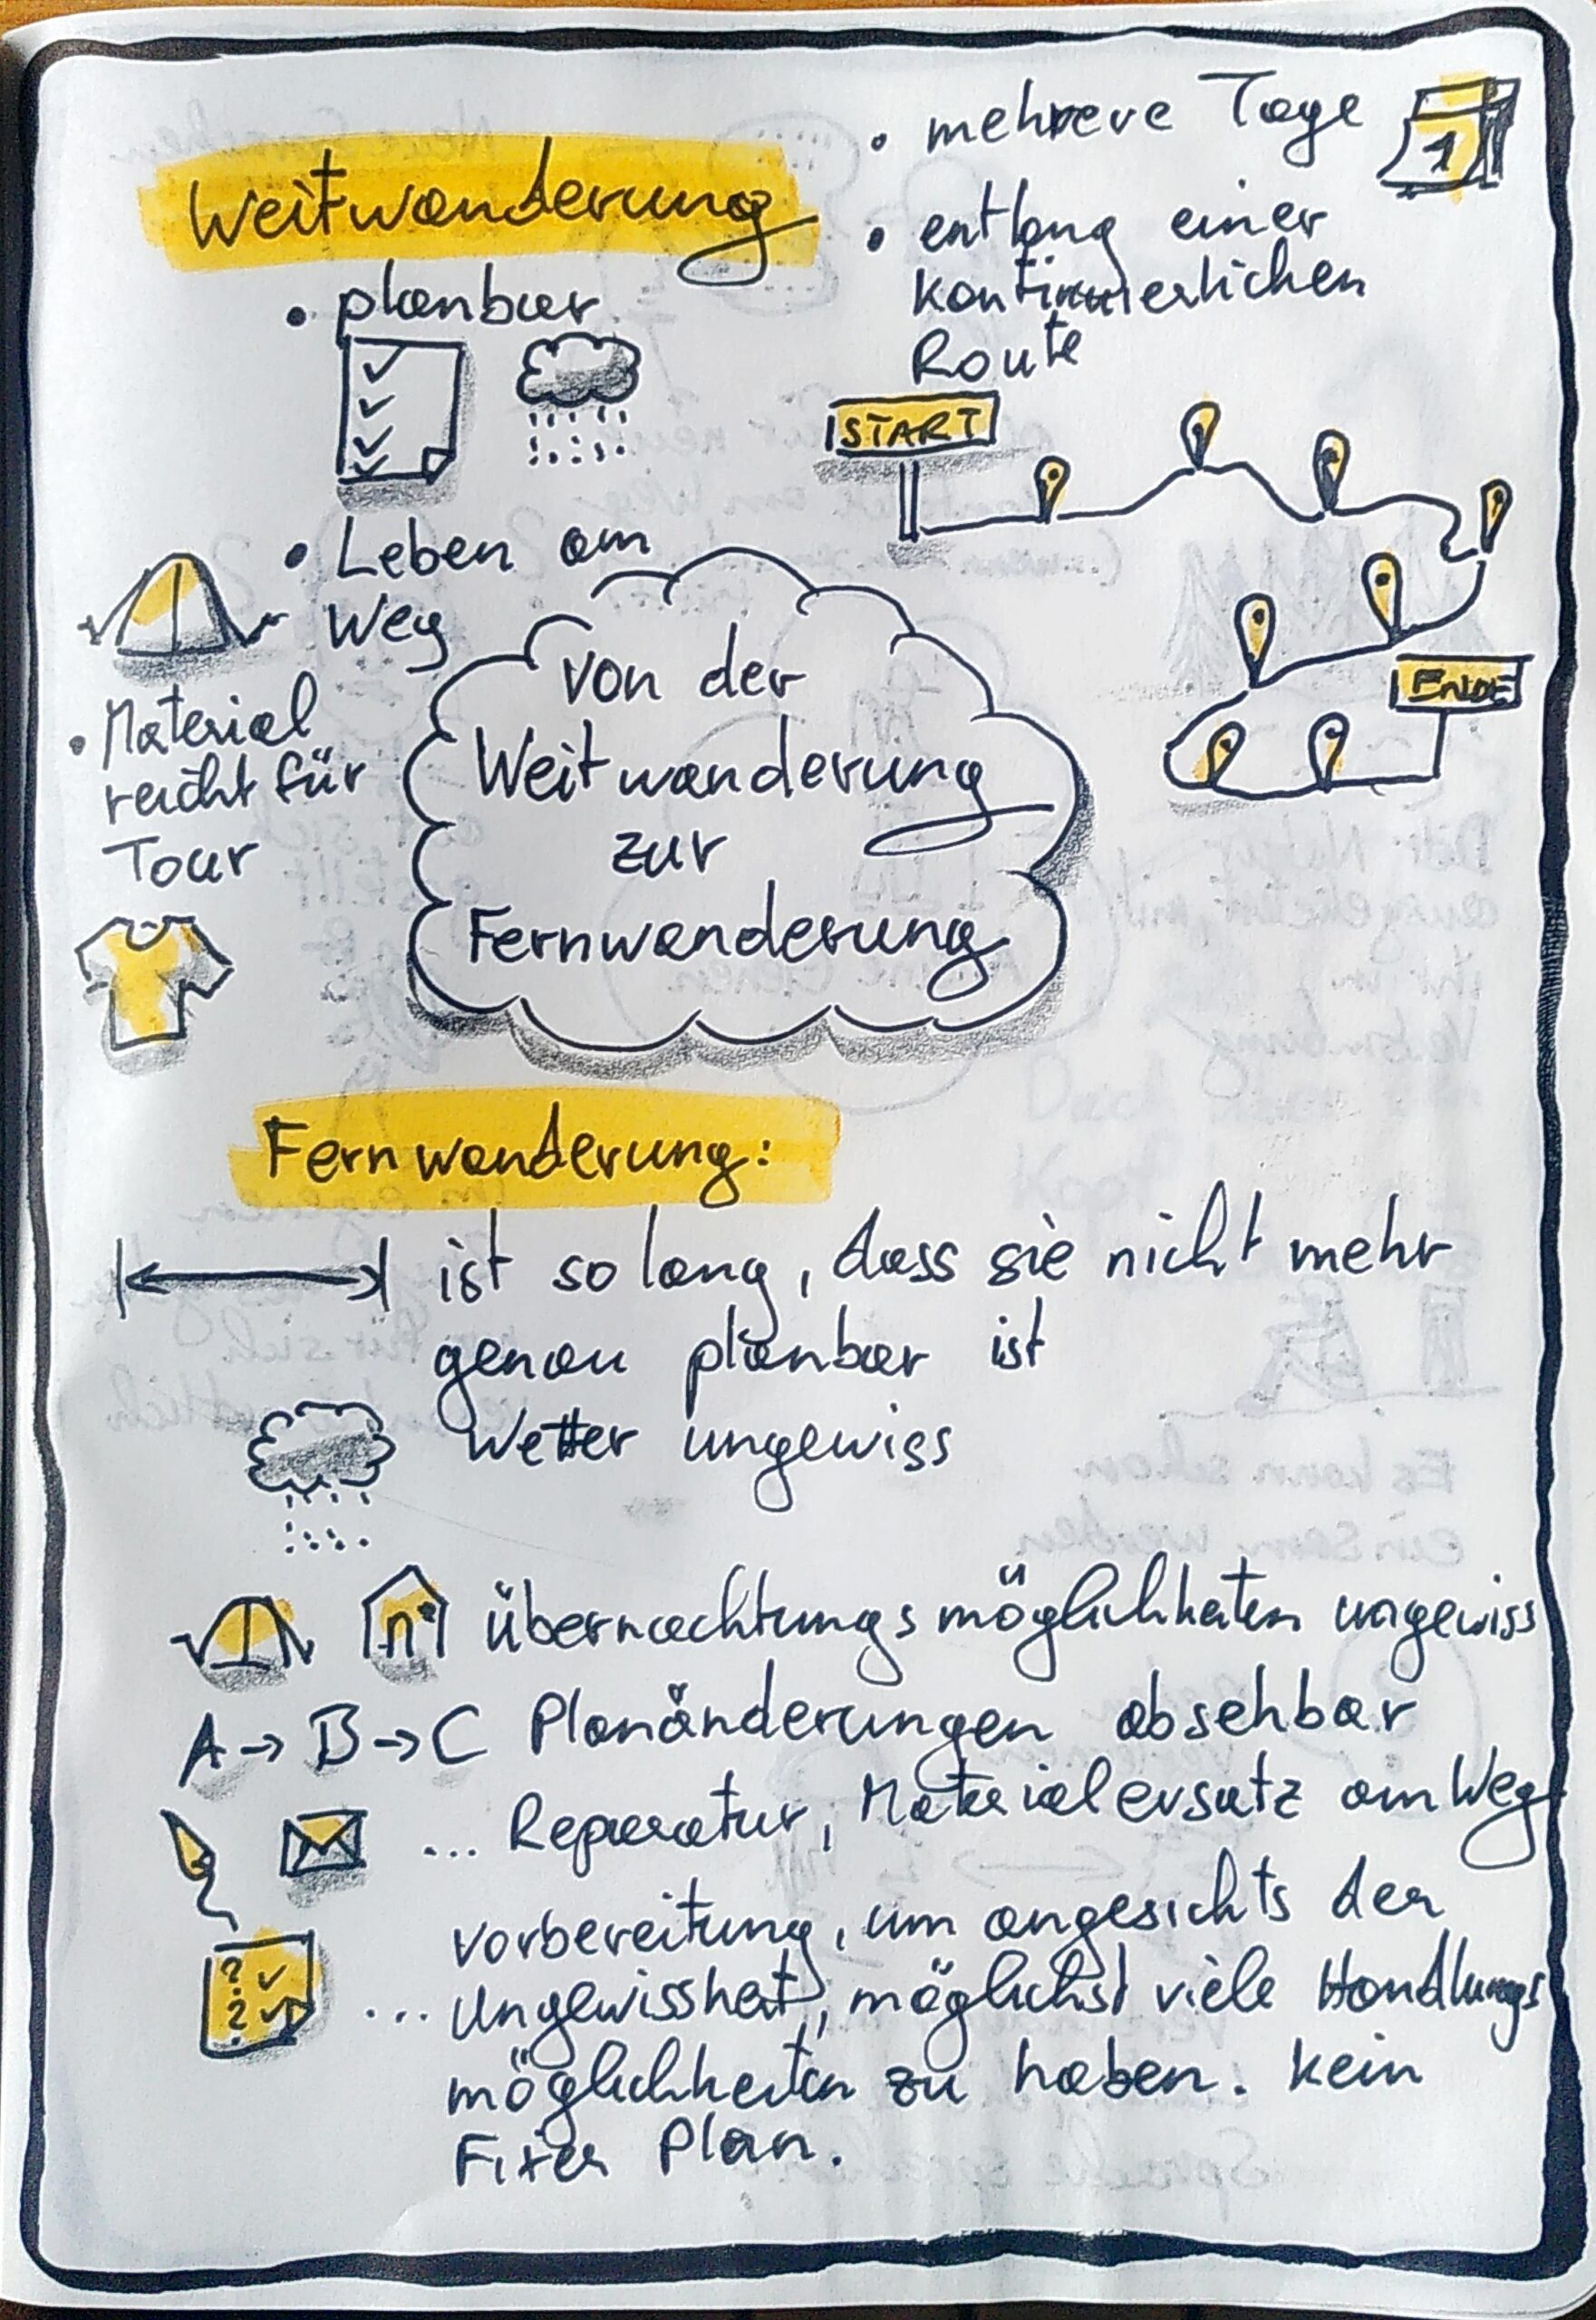 Weitwanderung
• planbar
• Leben am
Weg
• Material
reicht für
Tour
• mehrere Tage
1
• entlang einer
kontinuierlichen
Route
START
ENDE
von der
Weitwanderung
zur
Fernwanderung
Fernwanderung:
ist so lang, dass sie nicht mehr
genau planbar ist
Wetter ungewiss
übernachtungsmöglichkeiten ungewiss
A → B → C Planänderungen absehbar
... Reparatur, Materialersatz am Weg
? ✓
? ✓
vorbereitung, um angesichts der
... Ungewissheit, möglichst viele Handlungs
möglichkeiten zu haben. kein
Fixer Plan.